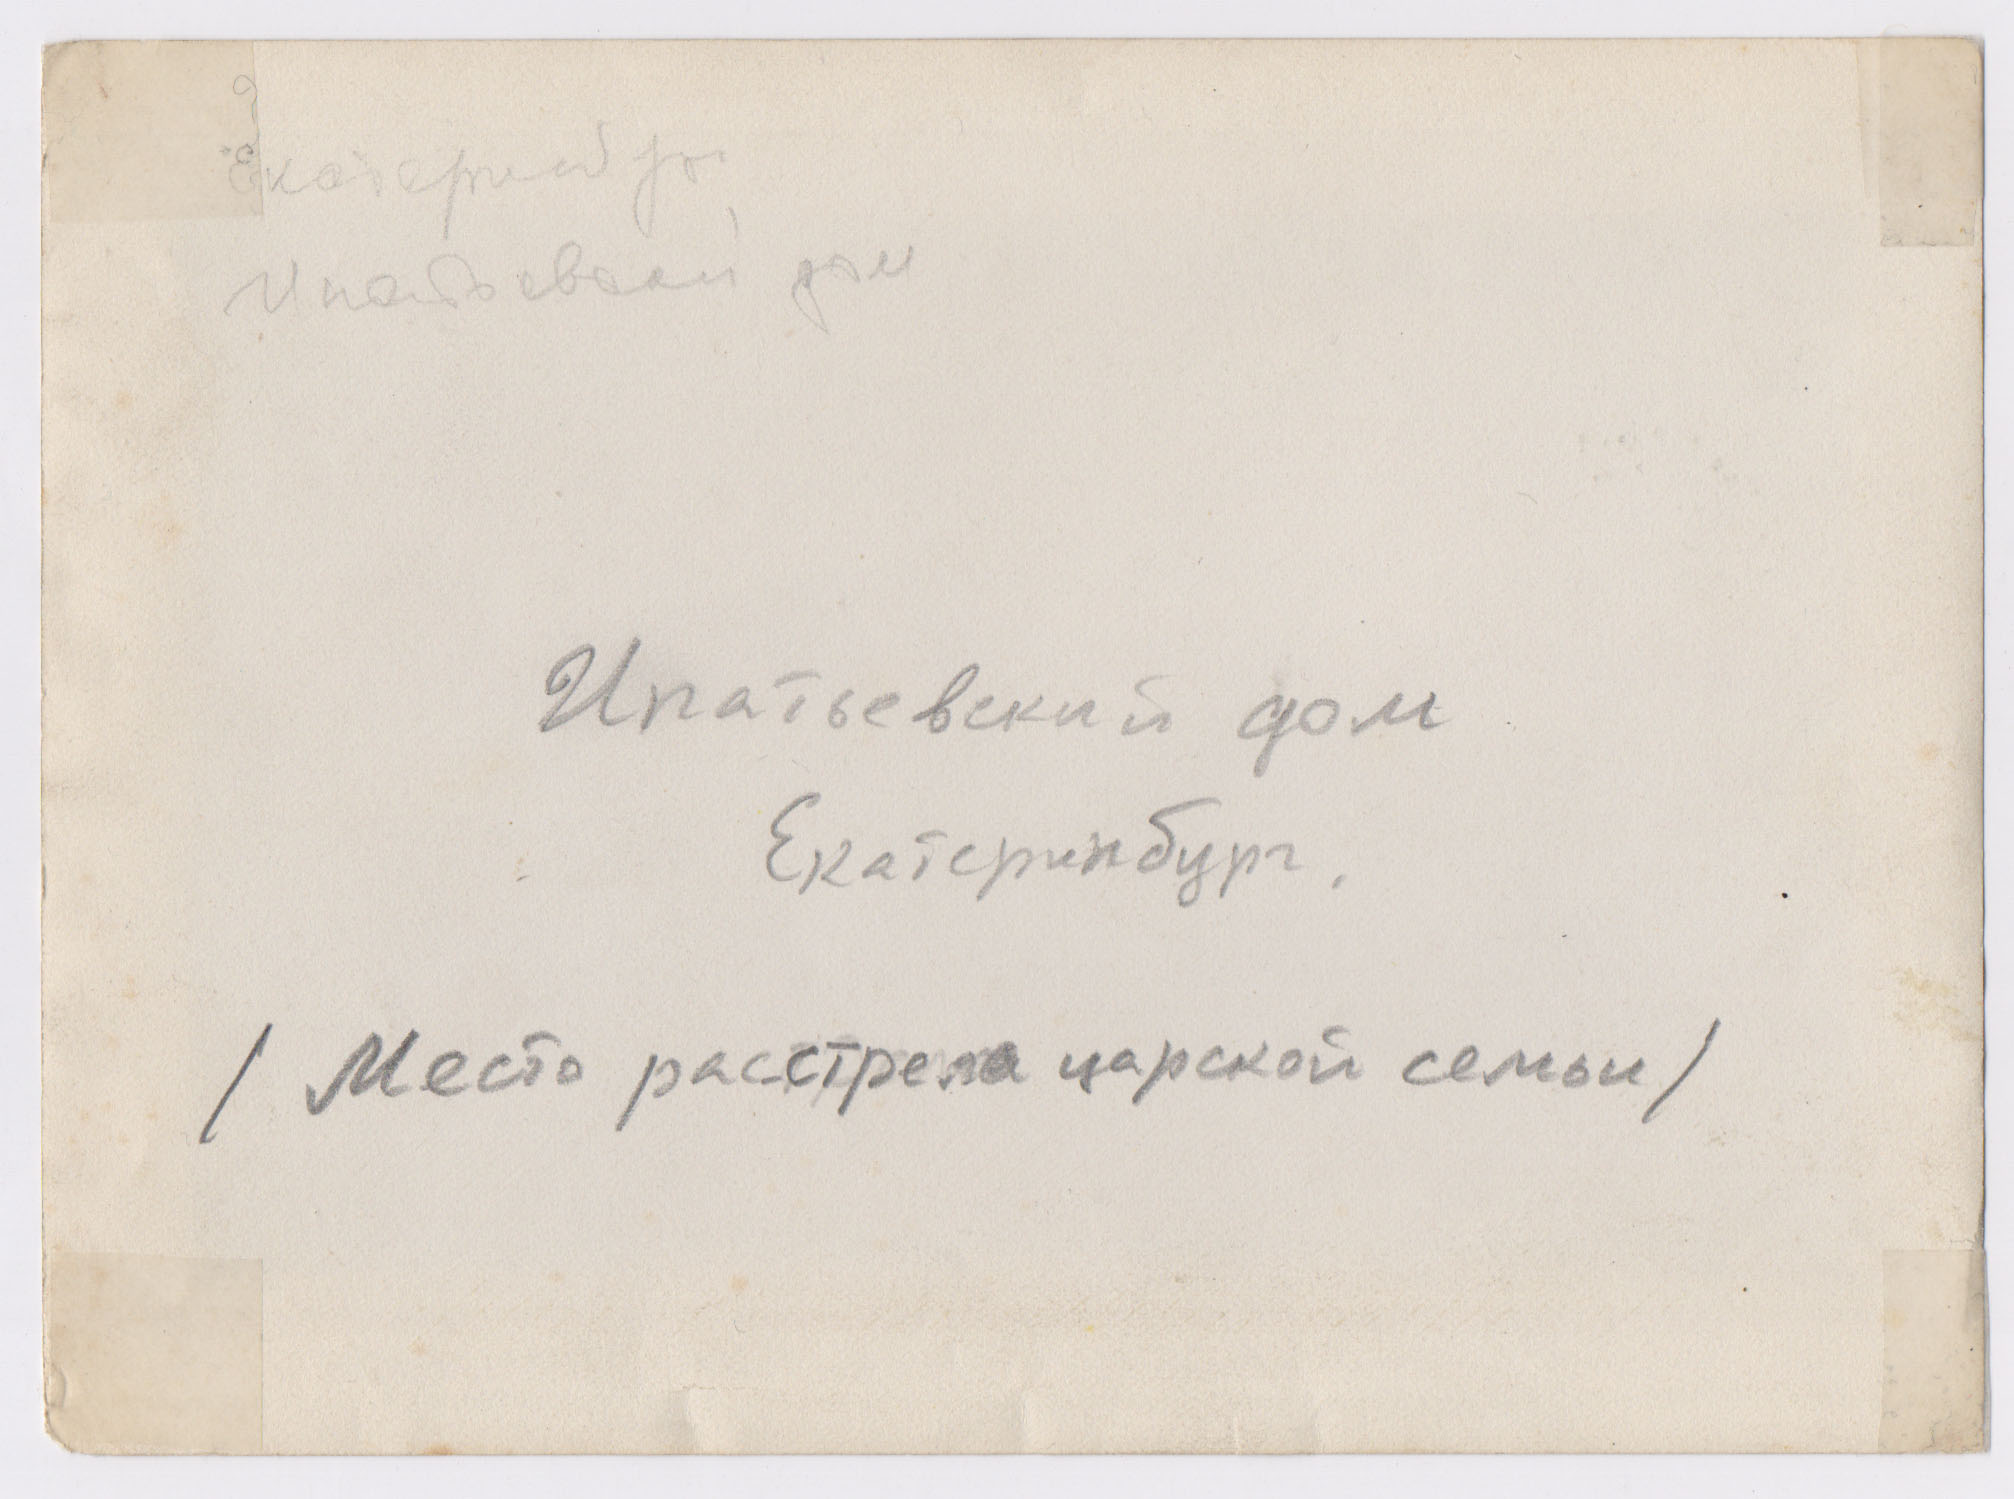 Екатеринбург
Ипатьевский дом
Ипатьевский дом
Екатеринбург.
/ Место расстрела царской семьи /